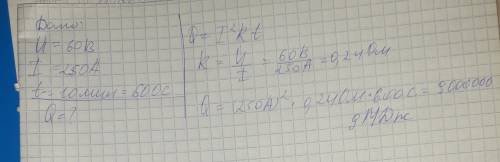 Дано:
U = 60В
I = 250А
t = 10мин = 600с
Q = ?
Q = I²Rt
R = U/I = 60В/250А = 0,24Ом
Q = (250А)² · 0,24Ом · 600с = 9000000
9МДж